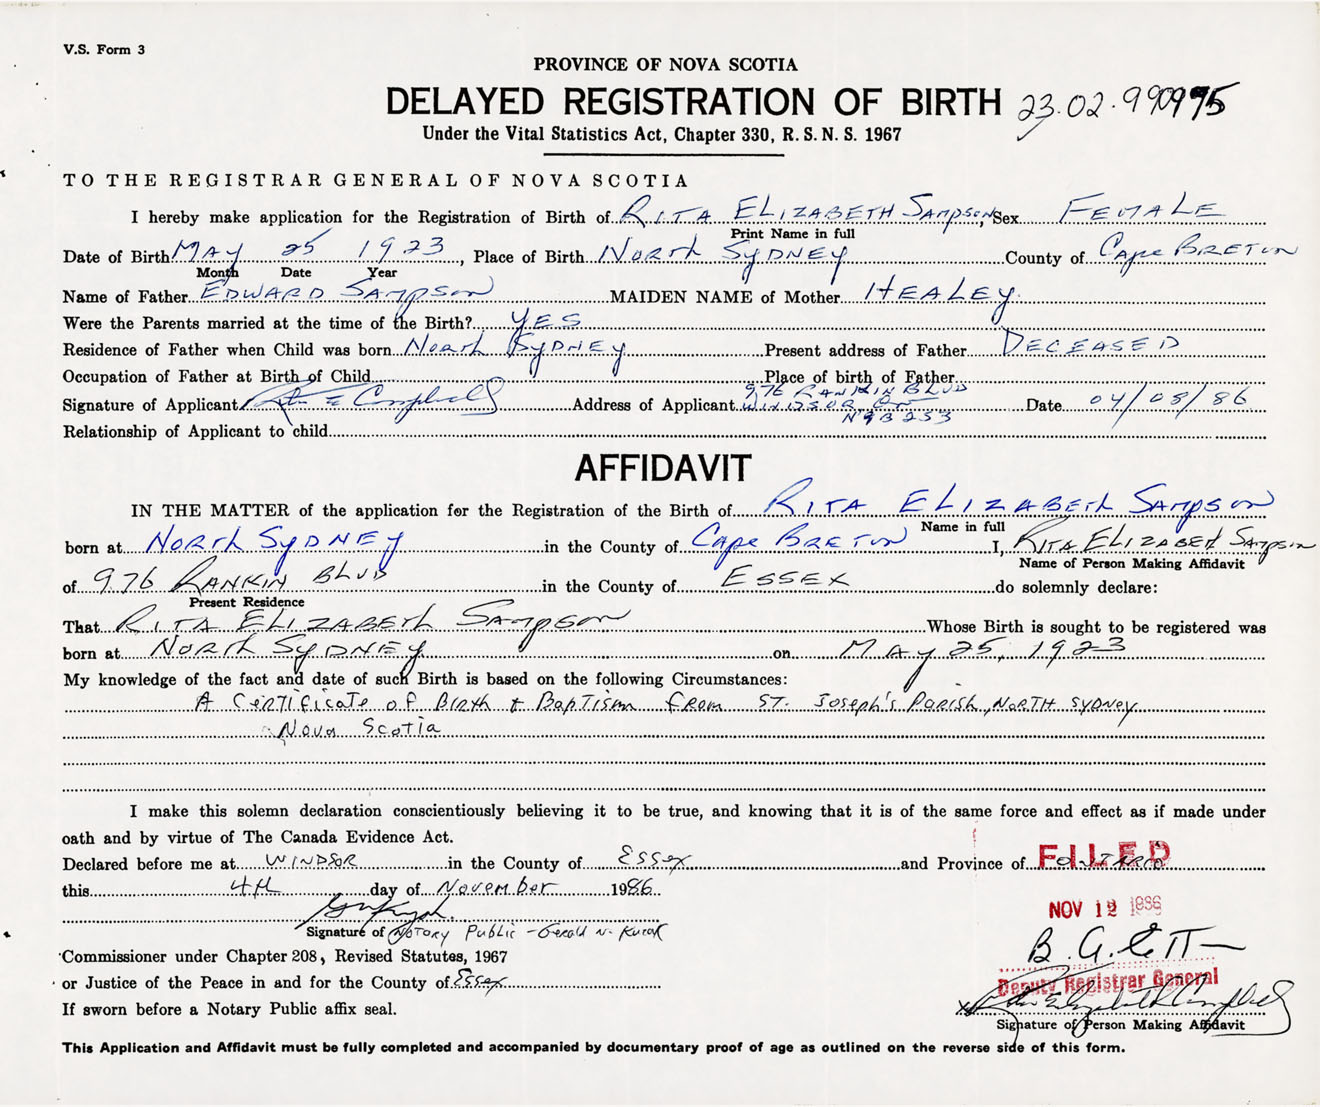 V.S. Form 3
PROVINCE OF NOVA SCOTIA
DELAYED REGISTRATION OF BIRTH 23.02.990995
Under the Vital Statistics Act, Chapter 330, R. S. N. S. 1967
TO THE REGISTRAR GENERAL OF NOVA SCOTIA
I hereby make application for the Registration of Birth of RITA ELIZABETH SAMPSON, Sex FEMALE
Print Name in full
Date of Birth MAY 25 1923, Place of Birth NORTH SYDNEY County of CAPE BRETON
Month Date Year
Name of Father EDWARD SAMPSON MAIDEN NAME of Mother HEALEY
Were the Parents married at the time of the Birth? YES
Residence of Father when Child was born NORTH SYDNEY Present address of Father DECEASED
Occupation of Father at Birth of Child Place of birth of Father
Signature of Applicant Rita E Campbell Address of Applicant 976 RANKIN BLVD WINDSOR, Date 04/08/86
Relationship of Applicant to child
AFFIDAVIT
IN THE MATTER of the application for the Registration of the Birth of RITA ELIZABETH SAMPSON
Name in full
born at NORTH SYDNEY in the County of CAPE BRETON I, RITA ELIZABETH SAMPSON
Name of Person Making Affidavit
of 976 RANKIN BLVD in the County of ESSEX do solemnly declare:
Present Residence
That RITA ELIZABETH SAMPSON Whose Birth is sought to be registered was
born at NORTH SYDNEY on MAY 25, 1923
My knowledge of the fact and date of such Birth is based on the following Circumstances:
A Certificate of Birth + Baptism from ST. Joseph's Parish, North Sydney
Nova Scotia
I make this solemn declaration conscientiously believing it to be true, and knowing that it is of the same force and effect as if made under
oath and by virtue of The Canada Evidence Act.
Declared before me at WINDSOR in the County of Essex and Province of ONTARIO
FILED
this 4th day of November 1986
NOV 12 1986
Signature of Notary Public - Gerald N. 
Commissioner under Chapter 208, Revised Statutes, 1967
or Justice of the Peace in and for the County of Essex
Deputy Registrar General
Rita Elizabeth Campbell
If sworn before a Notary Public affix seal.
Signature of Person Making Affidavit
This Application and Affidavit must be fully completed and accompanied by documentary proof of age as outlined on the reverse side of this form.